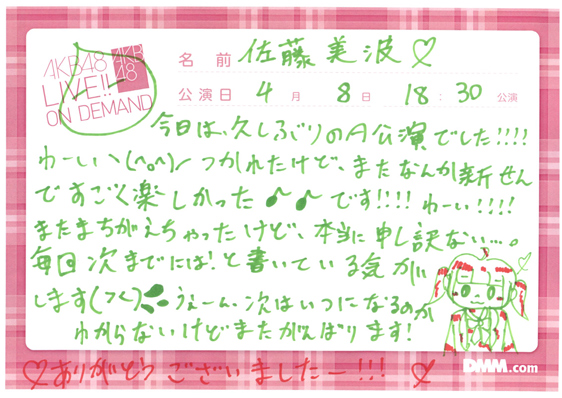 AKB48
LIVE!!
ON DEMAND
AKB
48
名前 佐藤美波♡
公演日 4月 8日 18:30 公演
今日は、久しぶりのA公演でした!!!!
わーいヽ(^o^)ノ つかれたけど、またなんか新せん
ですごく楽しかった♪♪です!!!! わーい!!!!
またまちがえちゃったけど、本当に申し訳ない…。
毎回次までには!と書いている気が
します(>く) うぇーん、次はいつになるのか
わからないけどまたがんばります!
♡ありがとうございましたー!!! ♡
DMM.com